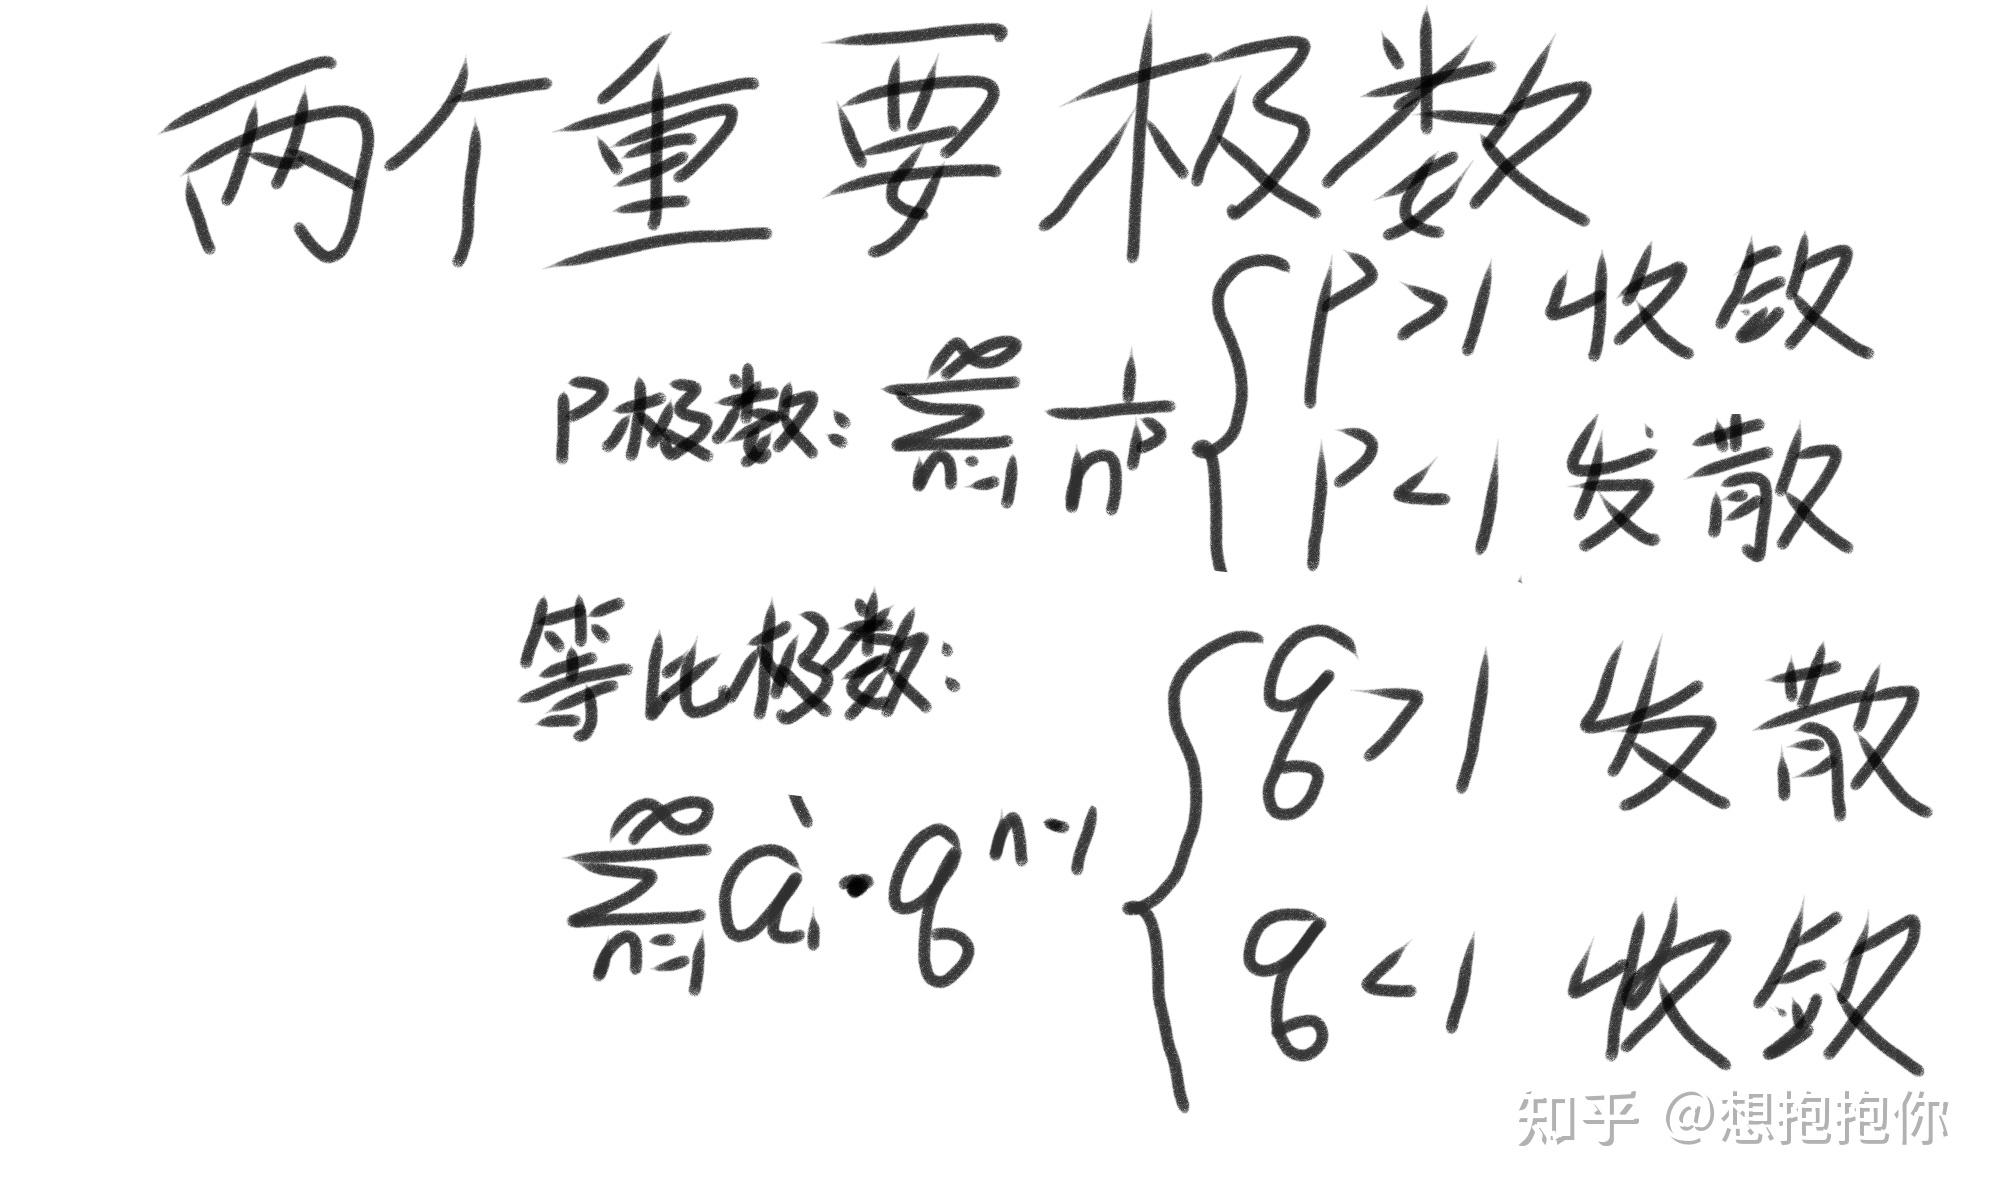 两个重要极数
P极数: ∑_{n=1}^{∞} 1/n^p { P>1 收敛
P<1 发散
等比极数:
∑_{n=1}^{∞} a₁·q^{n-1} { q>1 发散
q<1 收敛
知乎 @想抱抱你